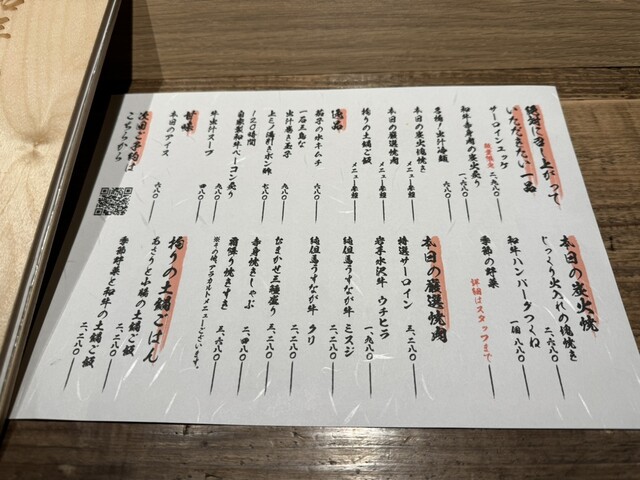 絶対に召し上がって
いただきたい一品
サーロインユッケ
数量限定 二、九八〇
和牛赤身肉の炭火炙り
一、六八〇
名物!虫汁冷麺
六八〇
本日の炭火塊焼き
メニュー参照
本日の厳選焼肉
メニュー参照
拘りの土鍋ご飯
メニュー参照
逸品
茄子の水キムチ
六八〇
一石三鳥な
牛出汁巻き玉子
八八〇
上ミノ湯引きポン酢
七八〇
120時間
自家製和牛ベーコン炙り
九八〇
牛出汁スープ
四八〇
甘味
本日のアイス
六八〇
次回ご予約は
こちらから
本日の炭火焼
じっくり火入れの塊焼き
二、六八〇
和牛ハンバーグつくね
一個 八八〇
季節の野菜
詳細はスタッフまで
本日の厳選焼肉
特選サーロイン
三、二八〇
岩手水沢牛 ウチヒラ
一、九八〇
純但馬うすなが牛 ミスジ
二、二八〇
純但馬うすなが牛 クリ
二、二八〇
おまかせ三種盛り
三、二八〇
赤身焼きしゃぶ
二、四八〇
霜降り焼きすき
三、六八〇
※その他、アラカルトメニューございます。
拘りの土鍋ごはん
あさりと小腸の土鍋ご飯
二、二八〇
季節野菜と和牛の土鍋ご飯
二、二八〇